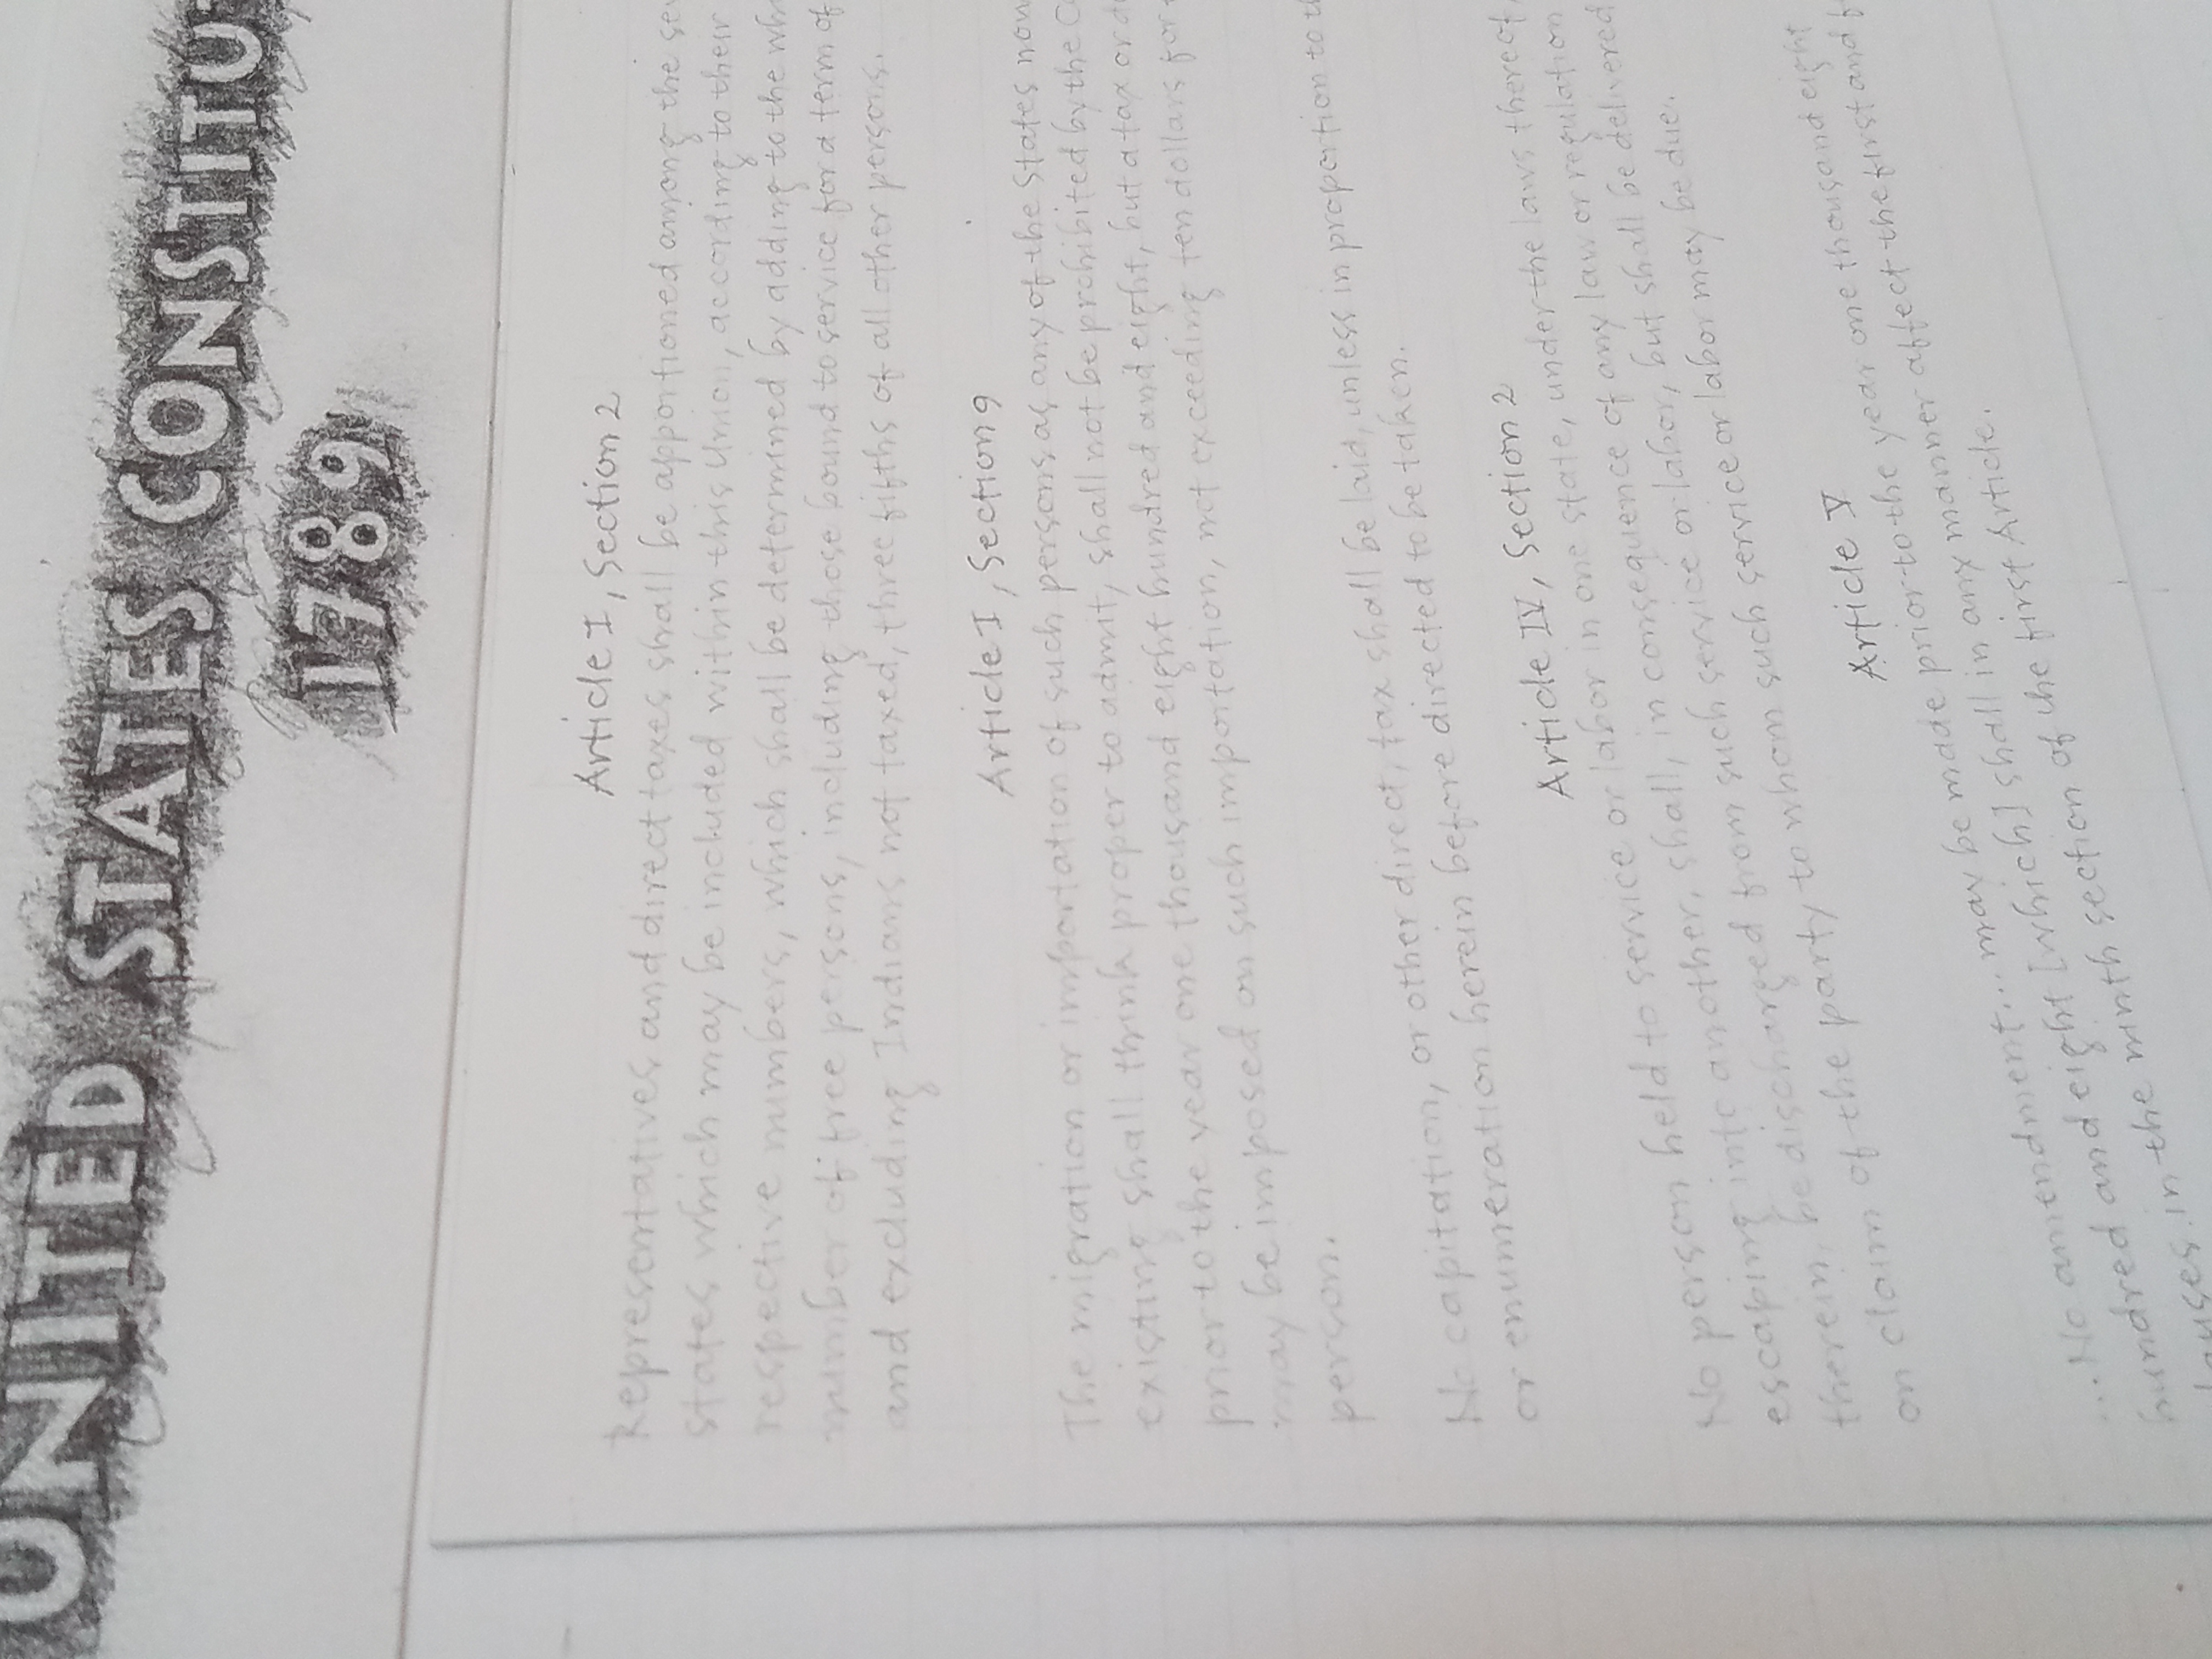 UNITED STATES CONSTITUT
1789
Article I, Section 2
Representatives and direct taxes shall be apportioned among the sev
states which may be included within this Union, according to their
respective numbers, which shall be determined by adding to the who
number of free persons, including those bound to service for a term of
and excluding Indians not taxed, three fifths of all other persons.
Article I, Section 9
The migration or importation of such persons as any of the States now
existing shall think proper to admit, shall not be prohibited by the Co
prior to the year one thousand eight hundred and eight, but a tax or du
may be imposed on such importation, not exceeding ten dollars for
person.
No capitation, or other direct, tax shall be laid, unless in proportion to th
or enumeration herein before directed to be taken.
Article IV, Section 2
No person held to service or labor in one state, under the laws thereof,
escaping into another, shall, in consequence of any law or regulation
therein, be discharged from such service or labor, but shall be delivered
on claim of the party to whom such service or labor may be due.
Article V
...No amendment... may be made prior to the year one thousand eight
hundred and eight [which] shall in any manner affect the first and fo
clauses in the ninth section of the first Article.